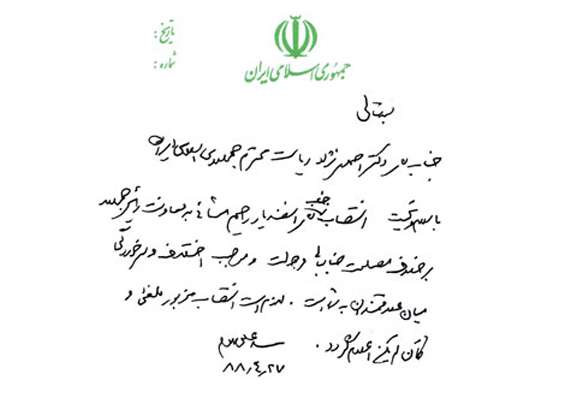 تاریخ:
شماره:
جمهوری اسلامی ایران
بسمه‌تعالی
جناب آقای دکتر احمدی نژاد ریاست محترم جمهوری اسلامی ایران
با سلام و تحیت انتصاب جناب آقای اسفندیار رحیم مشائی به معاونت رئیس جمهور
بر خلاف مصلحت جنابعالی و دولت و موجب اختلاف و سرخوردگی
میان علاقمندان به شما است. لازم است انتصاب مزبور ملغی و
کان لم یکن اعلام گردد.
سید علی خامنه‌ای
۸۸٫۴٫۲۷